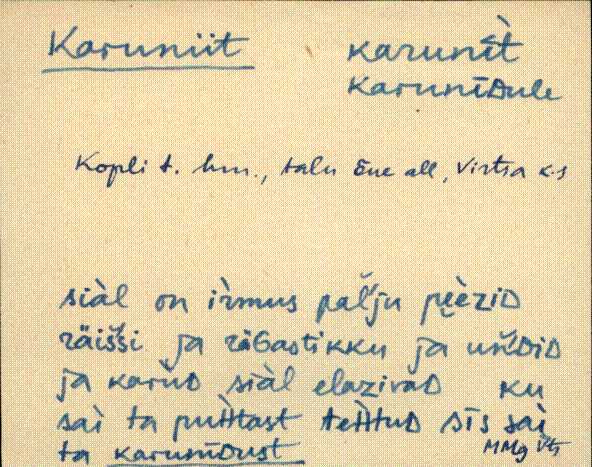 Karuniit karunìt
karuniDule
Kopli t. hm., talu õue all, Virtsa k.s
siàl on ìrmus paľju pèèzID
räišši ja räGastikku ja uńDiD
ja karuD siàl elazivaD ku
sai ta puhtast tehtuD sīs sai
ta karuniDust MMg Vlt